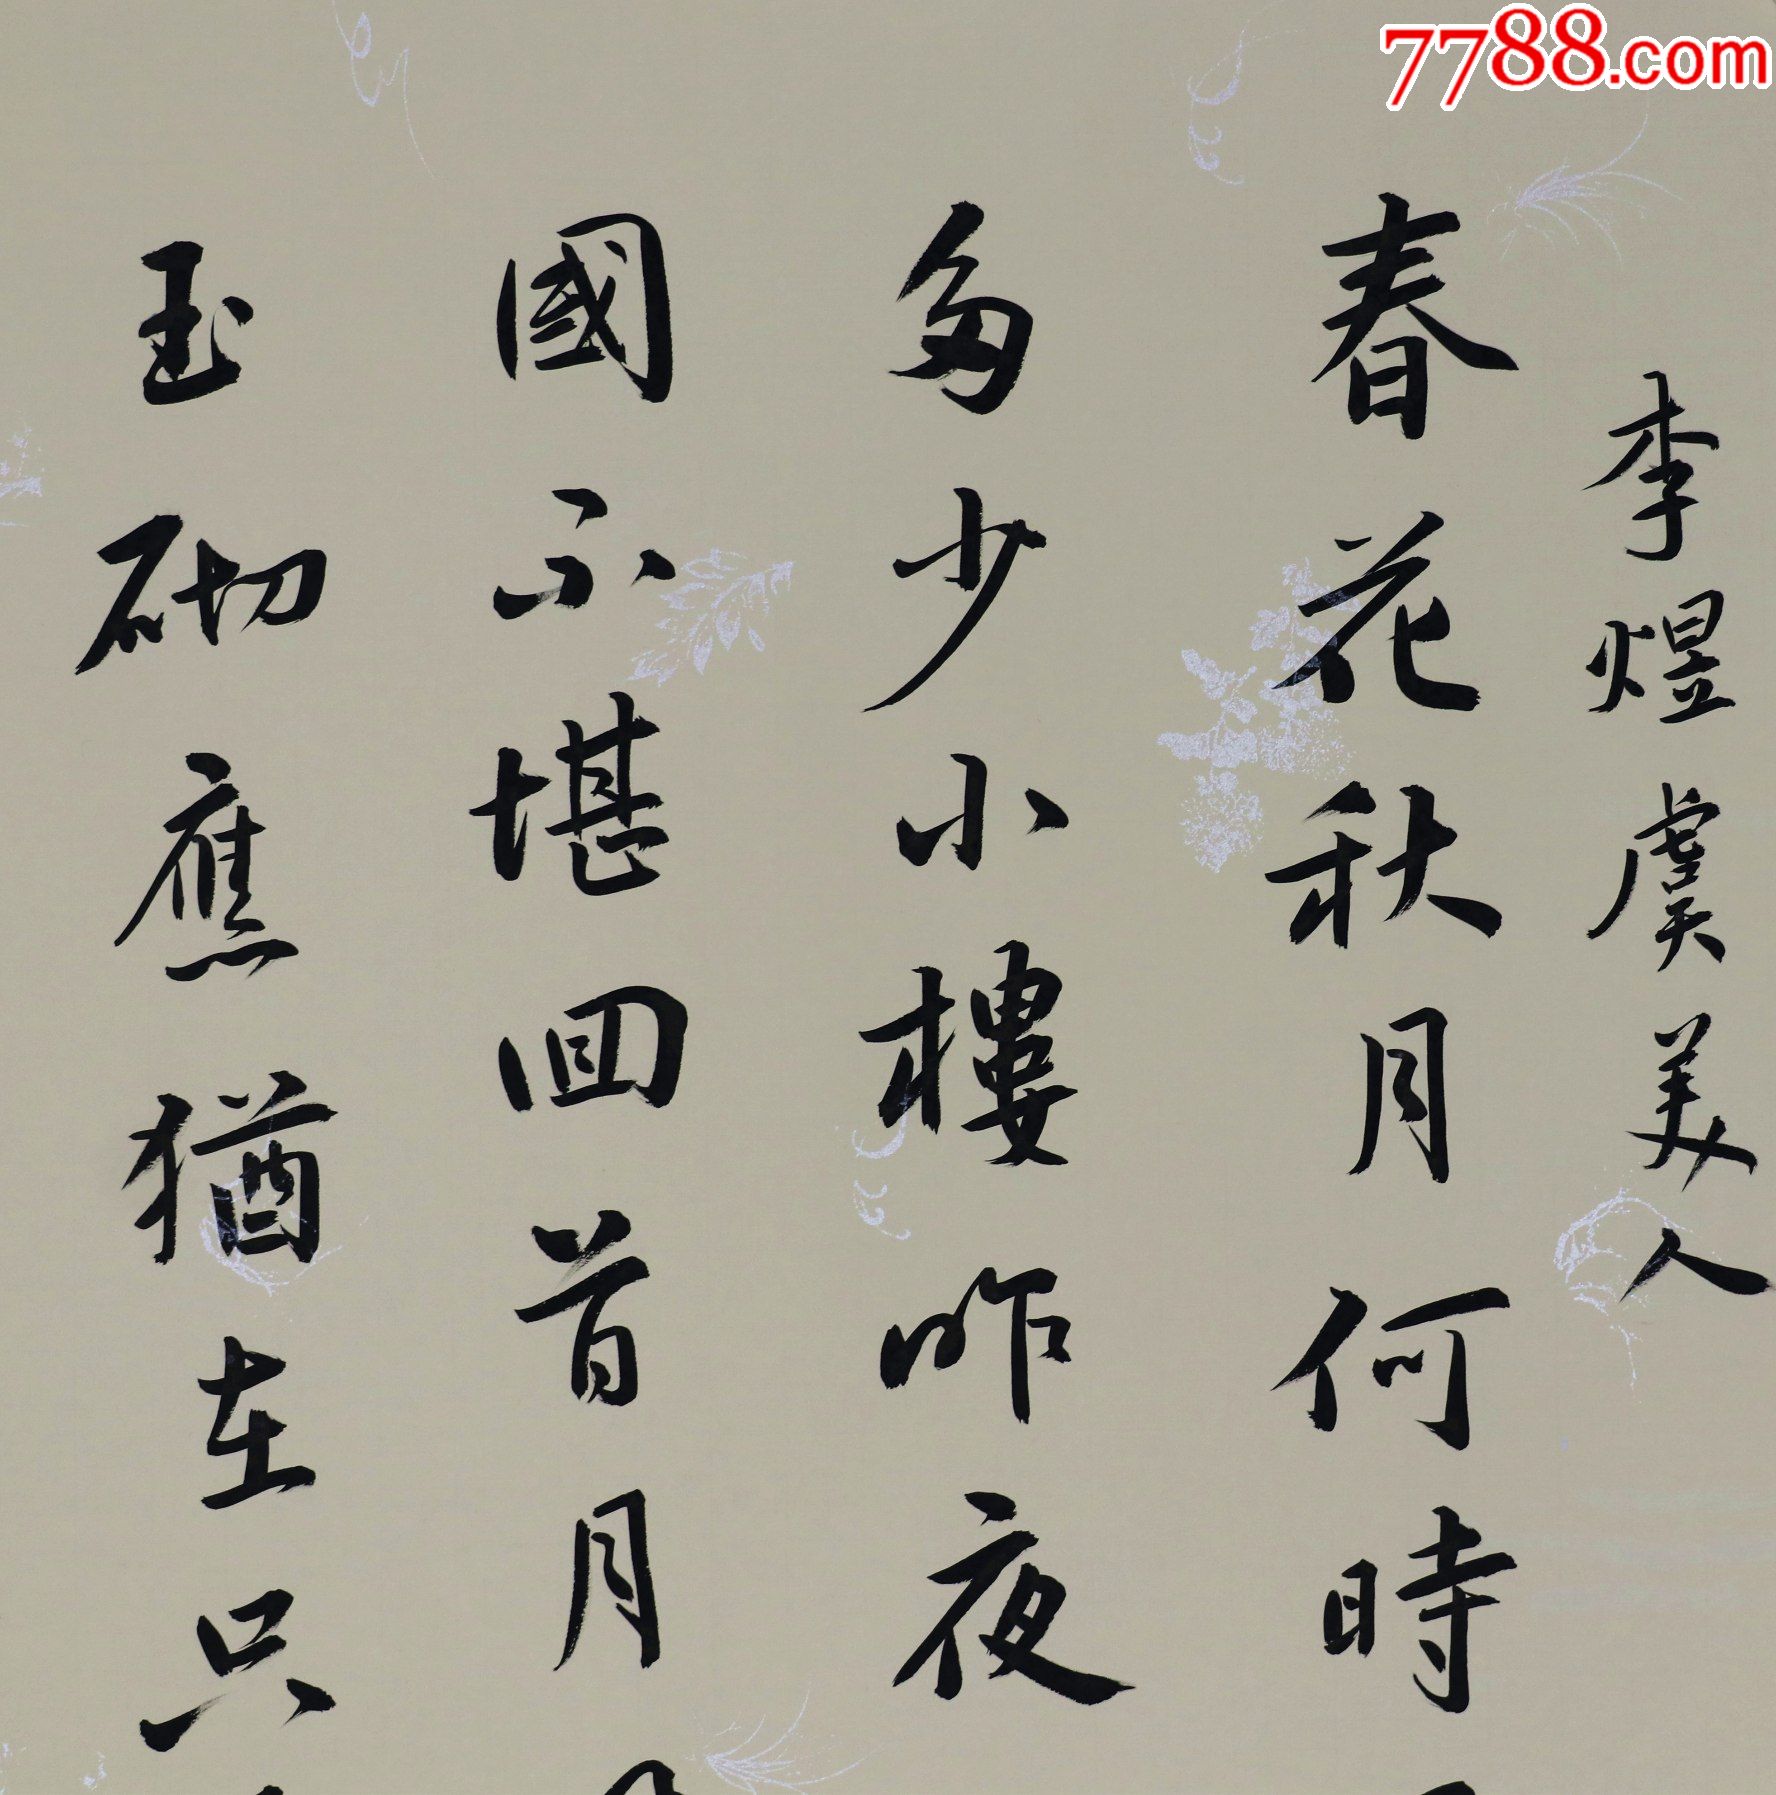 7788.com
李煜虞美人
春花秋月何時
多少小樓昨夜
國不堪回首月
玉砌應猶在只